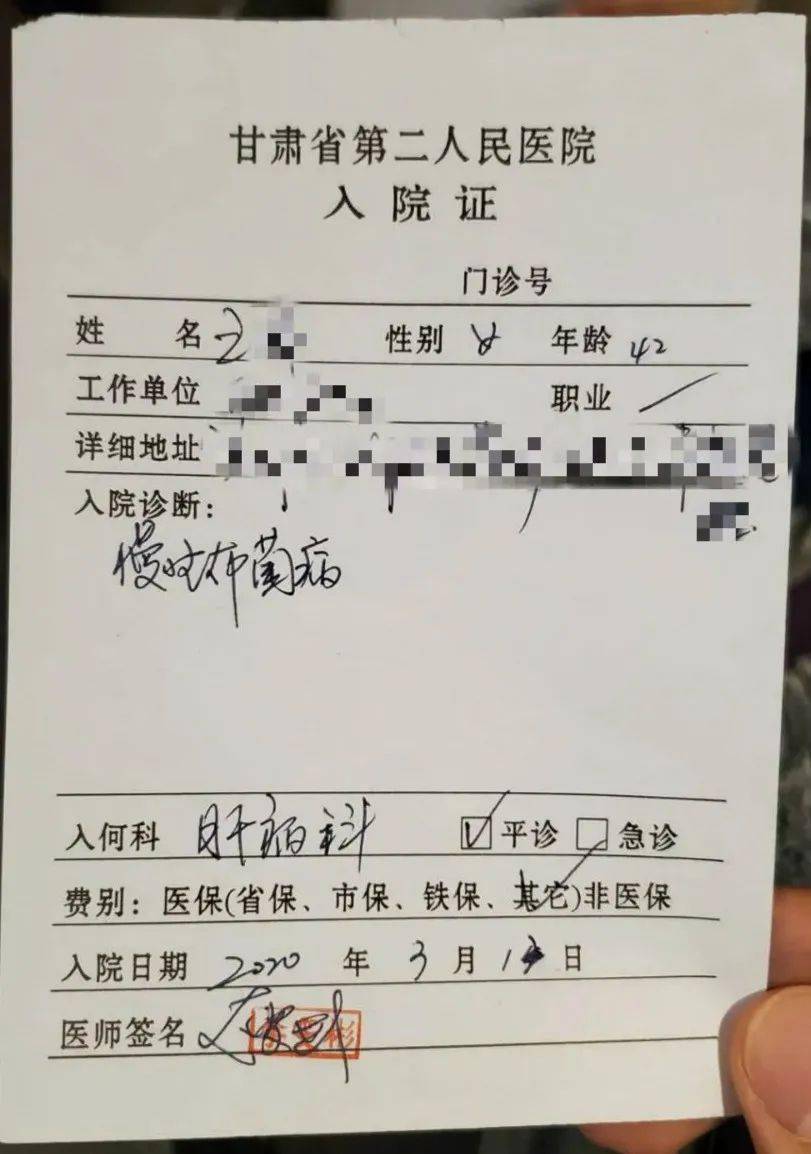 甘肃省第二人民医院
入院证
门诊号
姓名 王 性别 女 年龄 42
工作单位 职业 /
详细地址
入院诊断：
慢性布菌病
入何科 肝病科 ☑平诊 □急诊
费别：医保(省保、市保、铁保、其它)非医保
入院日期 2020 年 3 月 日
医师签名